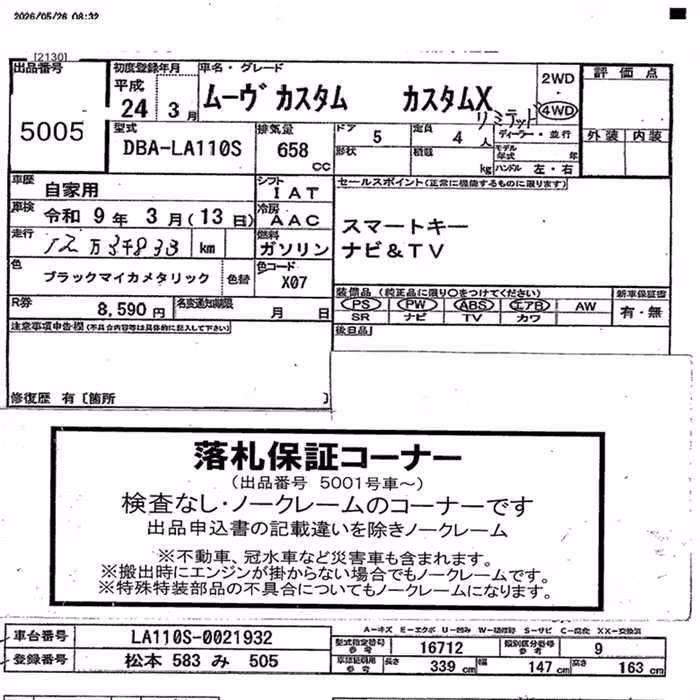 2026/05/26 08:32
[2130]
出品番号
5005
初度登録年月
平成
24 3月
車名・グレード
ムーヴ カスタム カスタムX
リミテッド
2WD
4WD
評価点
外装 内装
型式
DBA-LA110S
排気量
658
cc
ドア 5
定員 4 人
形状
積載 kg
ディーラー・並行
モデル年式 年
ハンドル 左・右
車歴
自家用
シフト
IAT
車検
令和 9年 3月(13日)
冷房
AAC
走行
km
燃料
ガソリン
色
ブラックマイカメタリック
色替
色コード
X07
R券
8,590 円
名変通知期限
月 日
セールスポイント(正常に機能するものに限ります)
スマートキー
ナビ&TV
装備品(純正品に限り〇をつけてください)
PS PW ABS エアB AW
SR ナビ TV カワ
新車保証書
有・無
後日品
注意事項申告欄(不具合内容等は具体的に記入して下さい)
修復歴 有〔箇所 〕
落札保証コーナー
(出品番号 5001号車~)
検査なし・ノークレームのコーナーです
出品申込書の記載違いを除きノークレーム
※不動車、冠水車など災害車も含まれます。
※搬出時にエンジンが掛からない場合でもノークレームです。
※特殊特装部品の不具合についてもノークレームになります。
A-キズ E-エクボ U-凹み W-補修跡 S-サビ C-腐食 XX-交換済
車台番号
LA110S-0021932
型式指定番号
参考
16712
類別区分番号
参考
9
登録番号
松本 583 み 505
車認証明用
参考
長さ 339 cm
幅 147 cm
高さ 163 cm